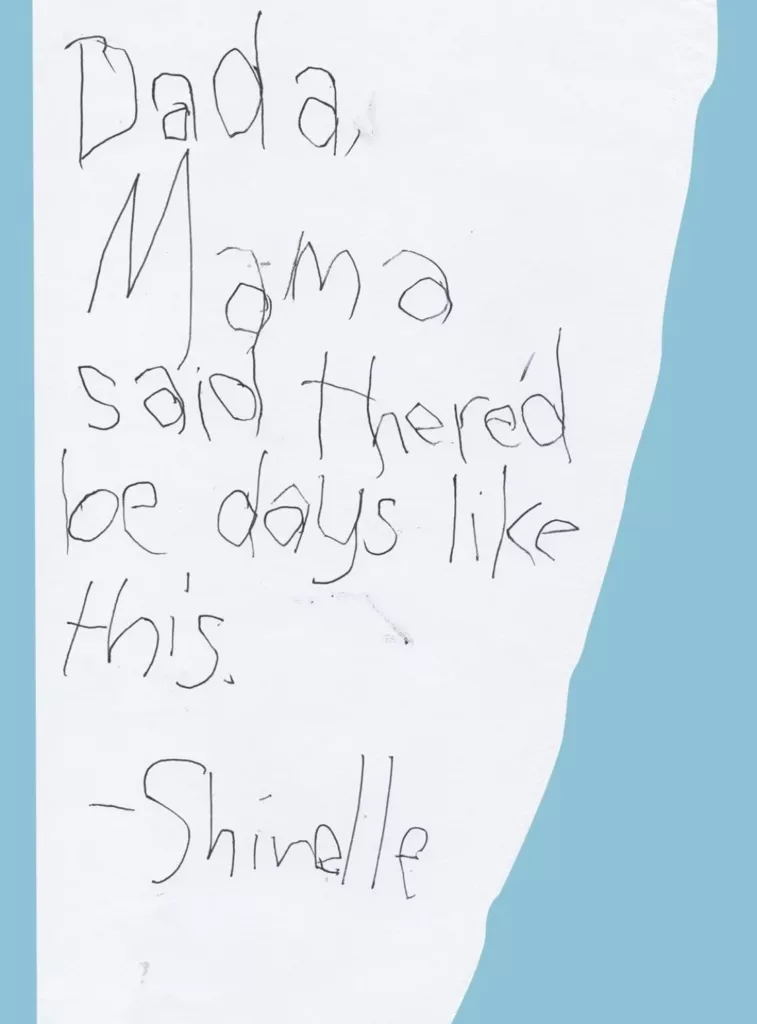 Dada,
Mama
said there'd
be days like
this.
-Shinelle